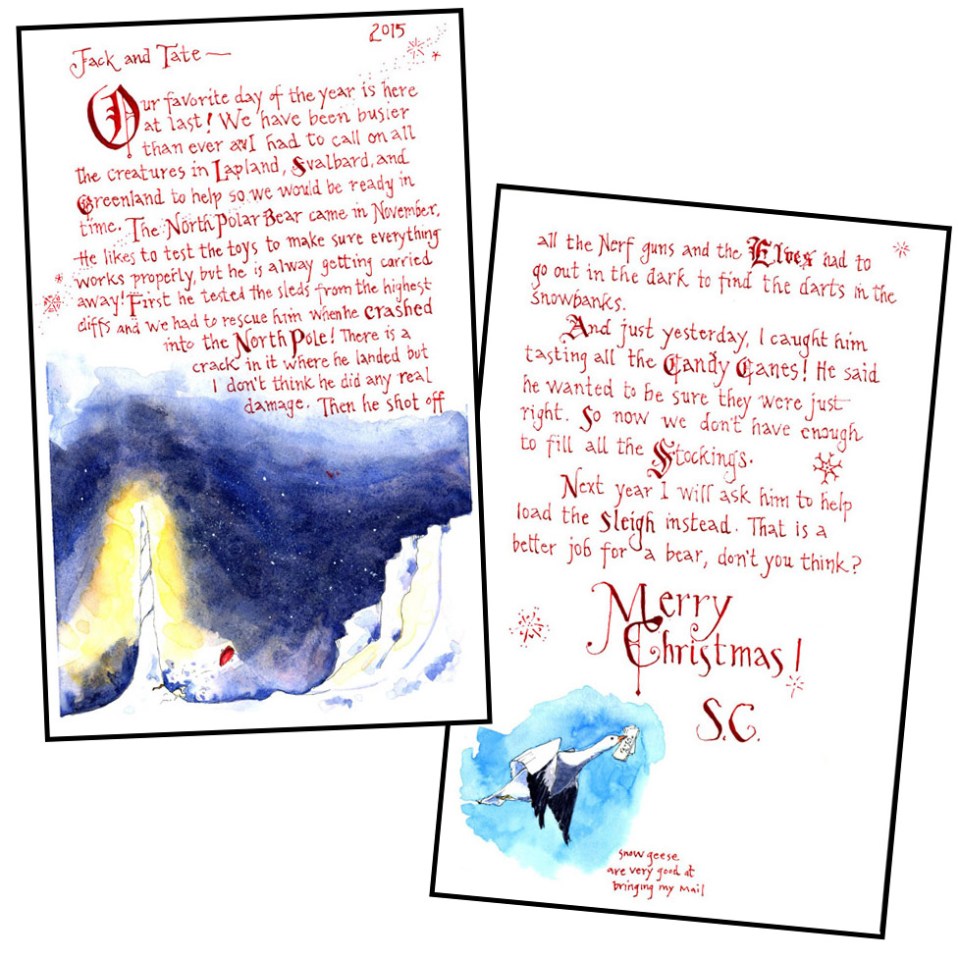 2015
Jack and Tate —
Our favorite day of the year is here
at last! We have been busier
than ever and I had to call on all
the creatures in Lapland, Svalbard, and
Greenland to help so we would be ready in
time. The North Polar Bear came in November,
He likes to test the toys to make sure everything
works properly, but he is alway getting carried
away! First he tested the sleds from the highest
cliffs and we had to rescue him when he crashed
into the North Pole! There is a
crack in it where he landed but
I don't think he did any real
damage. Then he shot off
all the Nerf guns and the Elves had to
go out in the dark to find the darts in the
snowbanks.
And just yesterday, I caught him
tasting all the Candy Canes! He said
he wanted to be sure they were just
right. So now we don't have enough
to fill all the Stockings.
Next year I will ask him to help
load the sleigh instead. That is a
better job for a bear, don't you think?
Merry
Christmas!
S.C.
snow geese
are very good at
bringing my mail